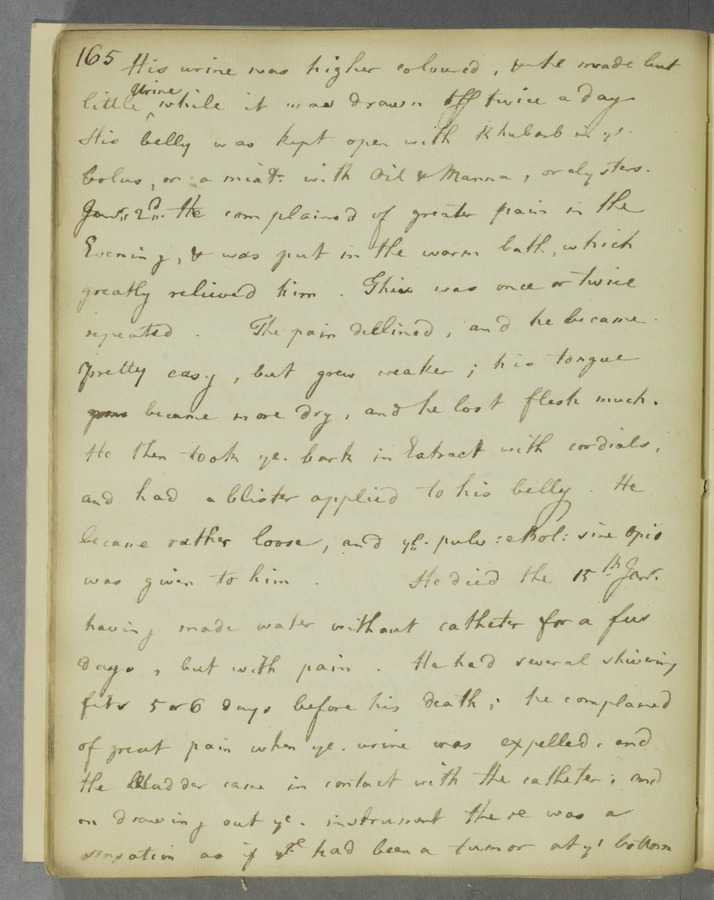 165 His urine was higher coloured, & he made but
little urine while it was drawn off twice a day
His belly was kept open with Rhubarb in ye.
bolus, or a mixt: with Oil & Manna, or clysters.
Janr. 2d. He complained of greater pain in the
Evening, & was put in the warm bath, which
greatly relieved him. This was once or twice
repeated. The pain declined, and he became
pretty easy, but grew weaker; his tongue
became more dry, and he lost flesh much.
He then took ye. bark in Extract with cordials,
and had a blister applied to his belly. He
became rather loose, and ye. pulv: e Bol: sine Opio
was given to him. He died the 15th Janr.
having made water without catheter for a few
days, but with pain. He had several shivering
fits 5 or 6 days before his death; he complained
of great pain when ye. urine was expelled, and
the bladder came in contact with the catheter; and
on drawing out ye. instrument there was a
sensation as if there had been a tumor at ye bottom